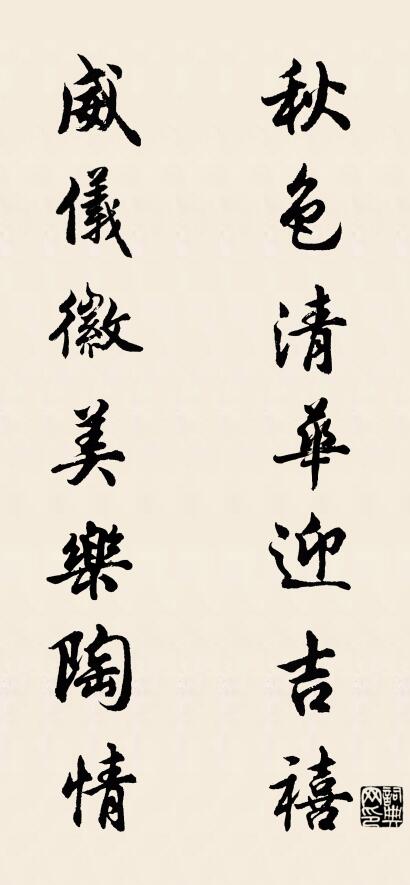 秋色清華迎吉禧
威儀徽美樂陶情
詞典網印